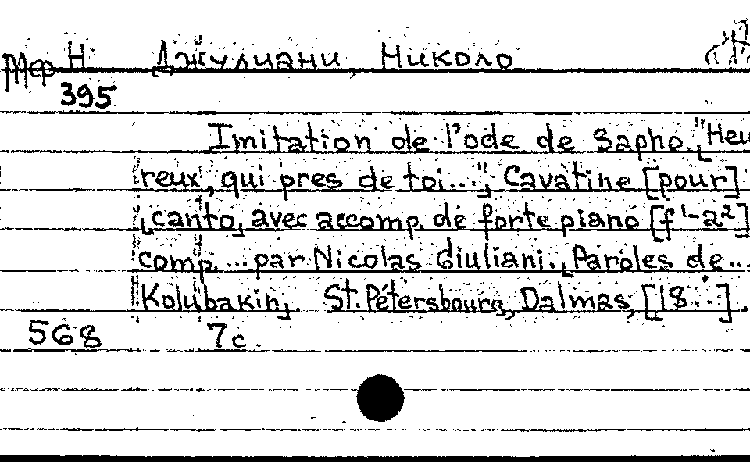 Мер Н Джулиани, Николо
395
Imitation de l'ode de Sapho „Heu
reux, qui pres de toi...", Cavatine [pour]
canto, avec accomp. de forte piano [f¹-a²]
comp. ... par Nicolas Giuliani. Paroles de ..
Kolubakin. St. Pétersbourg, Dalmas, [18..].
568 7с.